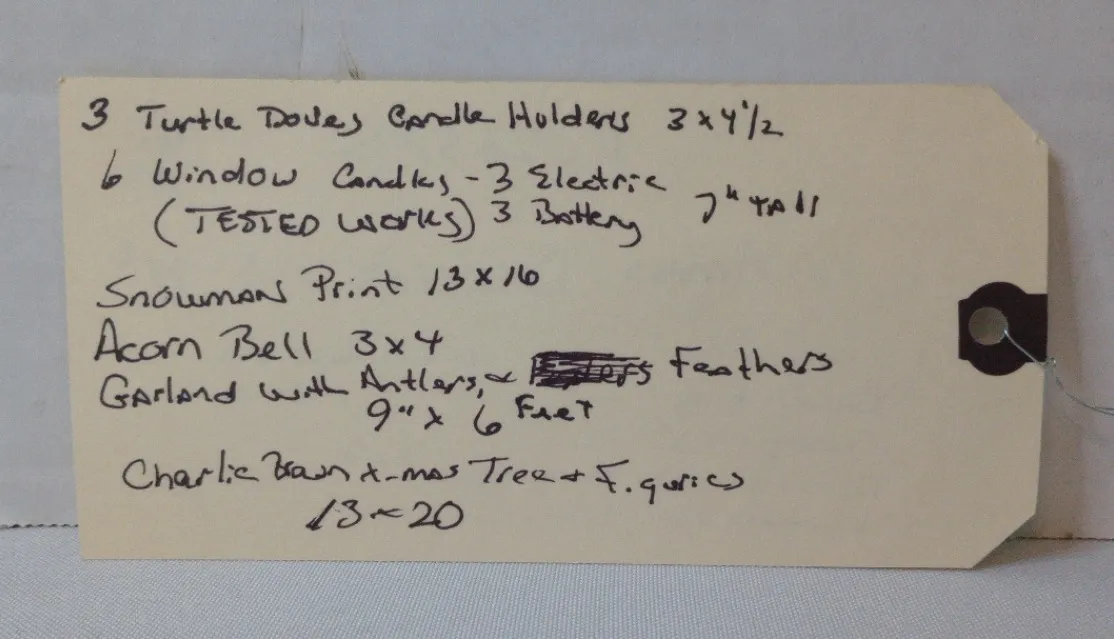 3 Turtle Doves Candle Holders 3 x 4 1/2
6 Window Candles - 3 Electric
(TESTED Works) 3 Battery 7" TAll
Snowman Print 13 x 16
Acorn Bell 3 x 4
Garland with Antlers, & Feathers
9" x 6 Feet
Charlie Brown X-mas Tree + Figuries
13 x 20